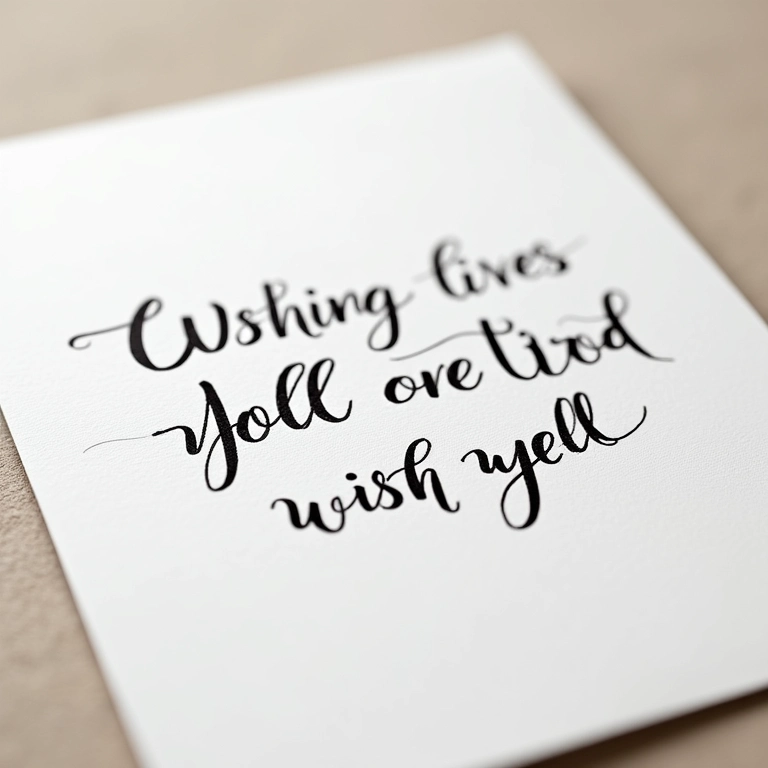 Wshing lives
Yoll ore tirod
wish wyell